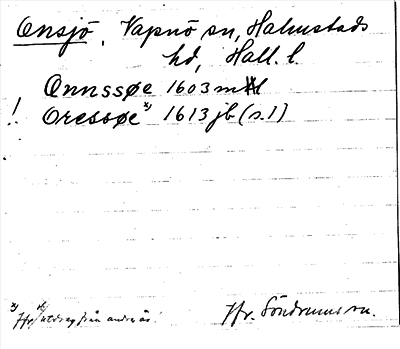 Onsjö, Vapnö sn, Halmstads
hd, Hall. l.
Onnssøe 1603 mtl
! Oressøe x) 1613 jb (s. 1)
x) Jfr utdrag från andra år.
Jfr. Söndrums sn.